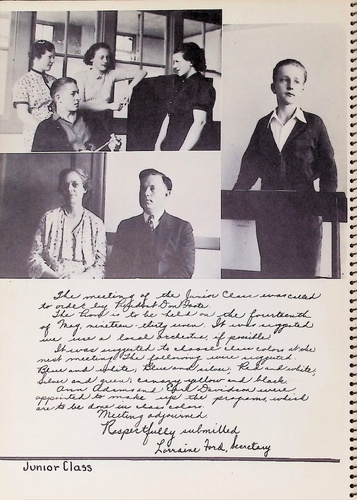 The meeting of the Junior Class was called
to order by President Don
The Prom is to be held on the fourteenth
of May, nineteen thirty seven. It was suggested
we use a local orchestra, if possible.
It was suggested to choose class colors at the
next meeting. The following were suggested:
Blue and white, Blue and silver, Red and white,
Silver and green, canary yellow and black.
Ann Adams and Davidson were
appointed to make up the programs which
are to be done in class colors.
Meeting adjourned.
Respectfully submitted
Lorraine Ford, Secretary
Junior Class